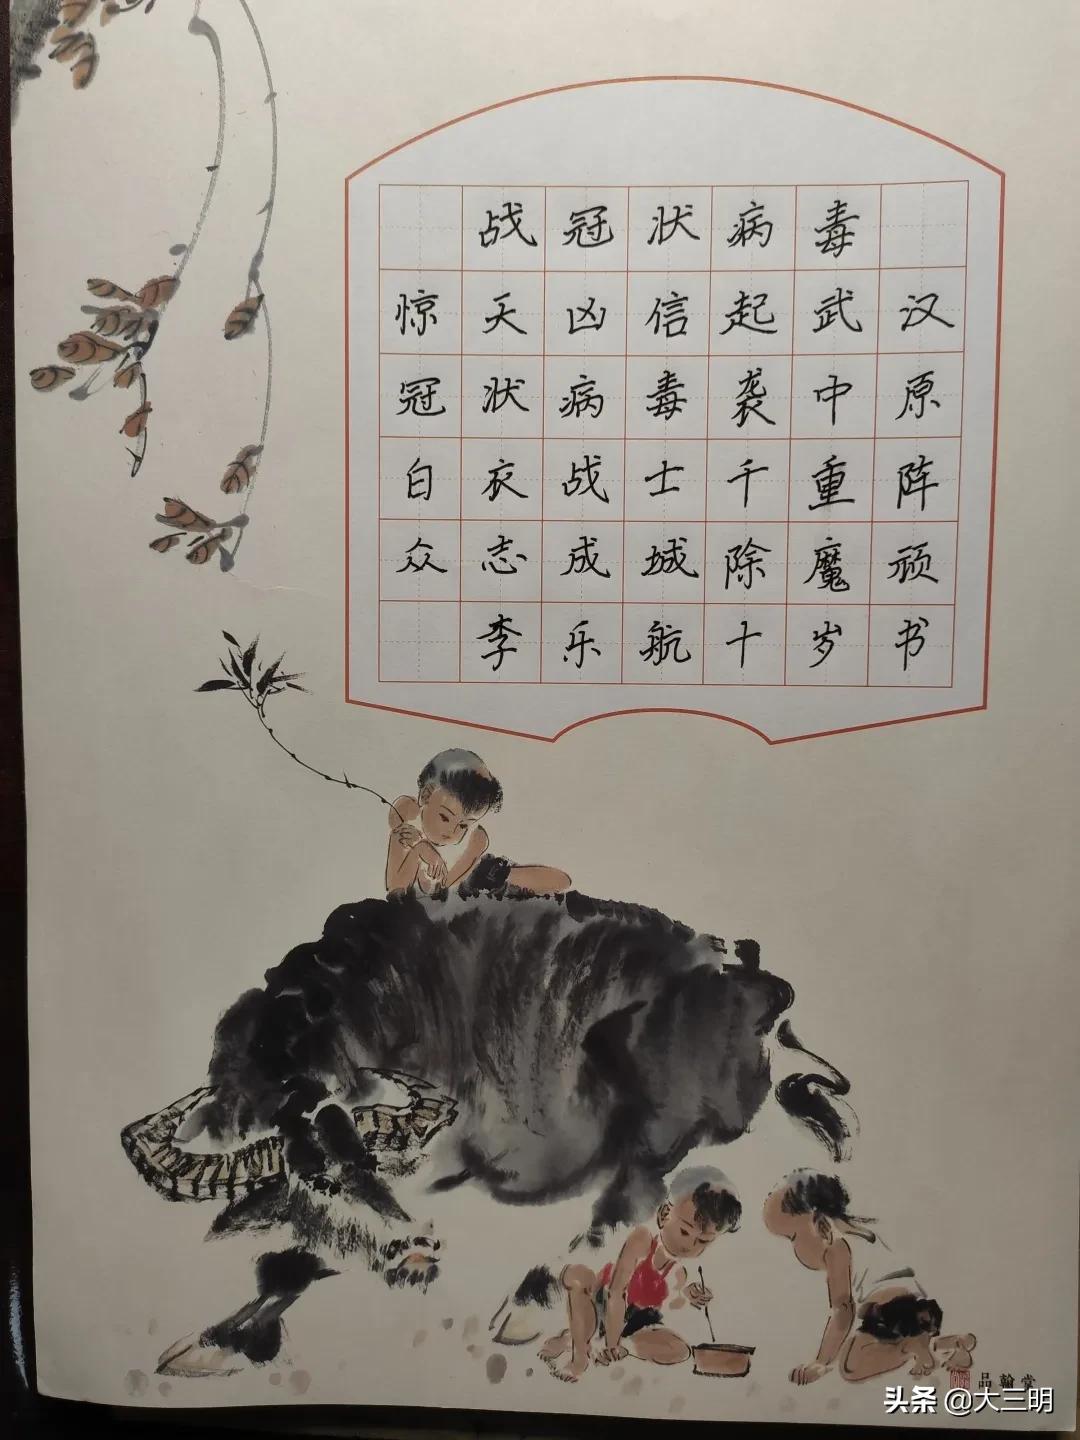 战冠状病毒
惊天凶信起武汉
冠状病毒袭中原
白衣战士千重阵
众志成城除魔顽
李乐航十岁书
品翰堂
头条@大三明